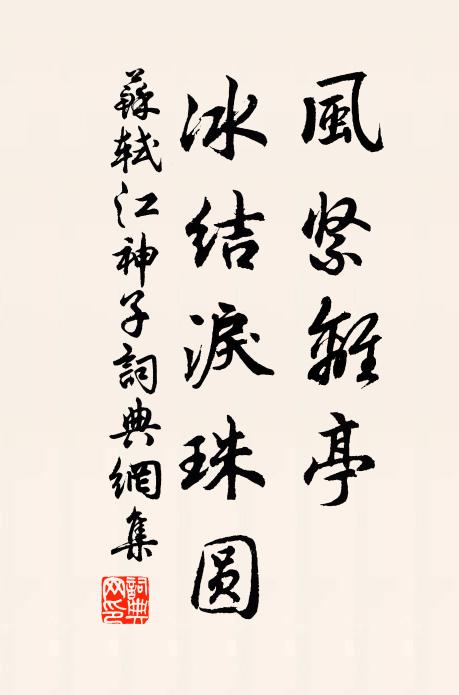 風緊離亭
冰結淚珠圓
蘇軾江神子詞典網集
詞典
网印